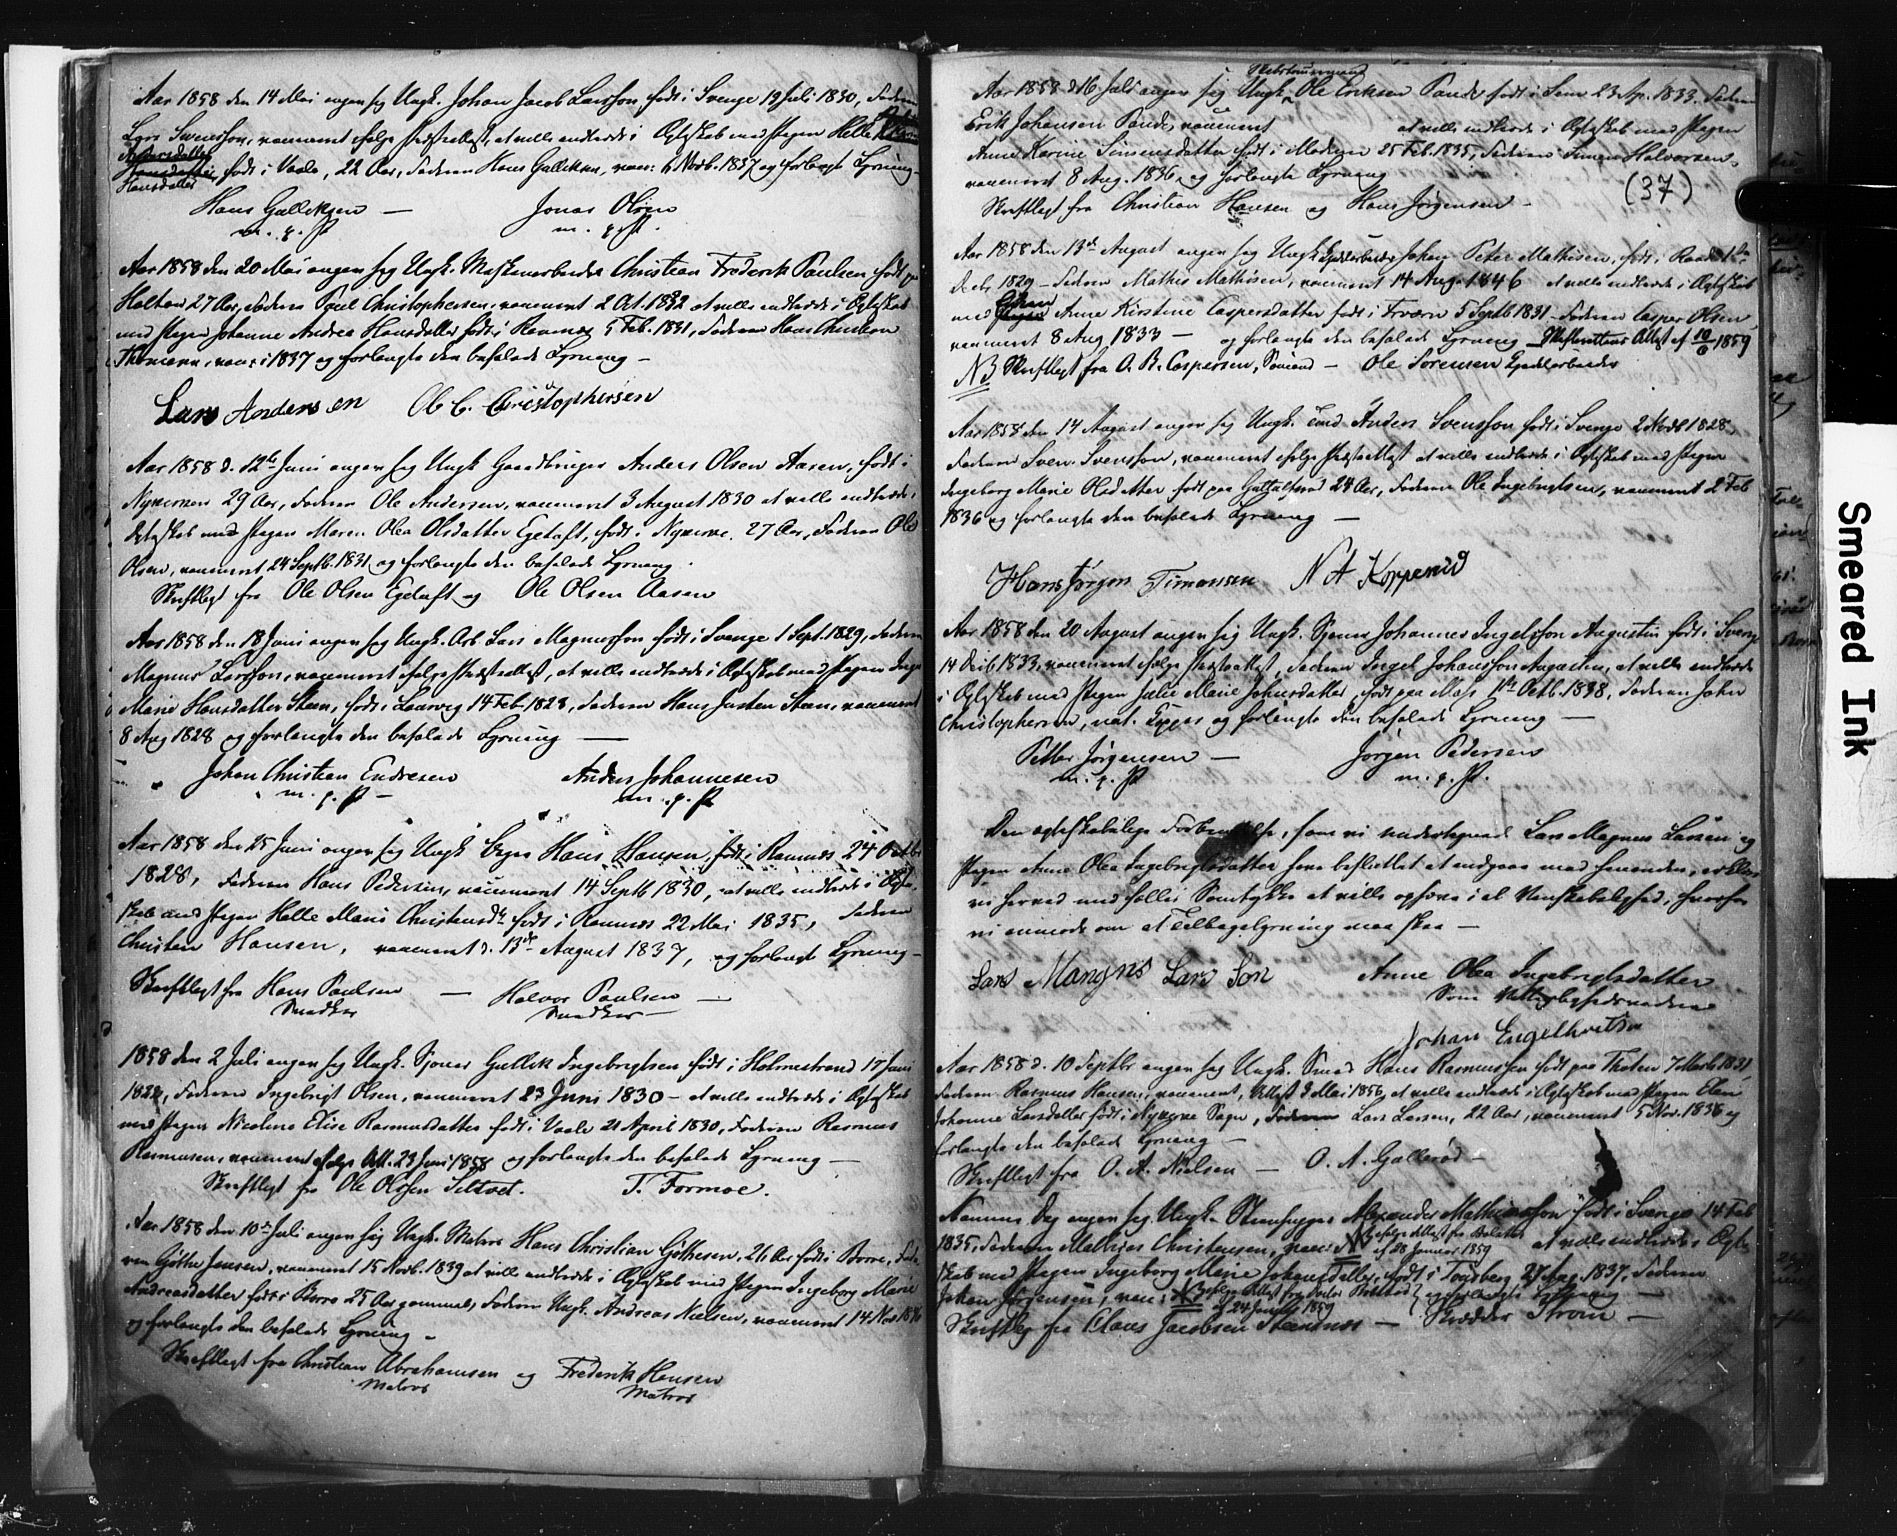 Aar 1858 den 14 Mai angav sig Ungk. Johan Jacob Larsson, født i Sverige 19 Juli 1830, Faderen
Lars Swensson, vaccineret ifølge Præsteattest, at ville indtræde i Ægteskab med Pigen Helle
Hansdatter født i Vaale, 22 Aar, Faderen Hans Gulliksen, vacc: 6 Novb. 1837, og forlangte Lysning.
Hans Gulliksen — Jonas Olsen
m. p. P. m. p. P.
Aar 1858 den 20 Mai angav sig Ungk. Maskinarbeider Christian Frederik Paulsen, født paa
Holtan 27 Aar, Faderen Paul Christophersen, vaccineret 2 Oct. 1832 at ville indtræde i Ægteskab
med Pigen Johanne Andrea Hansdatter født i Ramnæs 5 Feb. 1831, Faderen Hans Christian
vacc. i 1837 og forlangte den befalede Lysning —
Lars Andersen Ol C. Christophersen
Aar 1858 d. 12te Juni angav sig Ungk Gaardbruger Anders Olsen Aasen, født i
Nykirken 29 Aar, Faderen Ole Andersen, vaccineret 3 August 1830 at ville indtræde i
Ægteskab med Pigen Maren Olea Olsdatter Egetuft, født i Nykirke, 27 Aar, Faderen Ole
Olsen, vaccineret 24 Septb. 1831, og forlangte den befalede Lysning.
Skriftligt fra Ole Olsen Egetuft og Ole Olsen Aasen
Aar 1858 den 18 Juni angav sig Ungk. Arb. Lars Magnusson født i Sverige 1 Sept. 1829, Faderen
Magnus Larsson, vaccineret ifølge Præsteattest, at ville indtræde i Ægteskab med Pigen Inger
Marie Hansdatter Steen, født i Laurvig 14 Feb. 1828, Faderen Hans Justen Steen, vaccineret
8 Aug 1828 og forlangte den befalede Lysning —
Johan Christian Endresen Anders Johannesen
m. p. P. — m. p. P.
Aar 1858 den 25 Juni angav sig Ungk Hans Hansen, født i Ramnæs 24 Octbr
1828, Faderen Hans Pedersen, vaccineret 14 Septb 1830, at ville indtræde i Ægte-
skab med Pigen Helle Maria Christensdtr født i Ramnæs 22 Mai 1835, Faderen
Christen Hansen, vaccineret d. 13de August 1837, og forlangte Lysning —
Skriftligt fra Hans Paulsen — Halvor Paulsen —
Snedker Snedker —
1858 den 2 Juli angav sig Ungk. Sjømand Gullik Ingebrigtsen født i Holmestrand 15 Juni
1828, Faderen Ingebrigt Olsen, vaccineret 23 Juni 1830 — at ville indtræde i Ægteskab
med Pigen Nicoline Elise Rasmusdatter født i Vaale 21 April 1830, Faderen Rasmus
Rasmusen, vaccineret ifølge Att. 23 Juni 1858 og forlangte den befalede Lysning —
Skriftligt fra Ole Olsen Siltvet. T. Formoe.
Aar 1858 den 10de Juli angav sig Ungk. Matros Hans Christian Gøthesen, 26 Aar født i Borre, Fade-
ren Gøthe Jensen, vaccineret 15 Novb. 1839 at ville indtræde i Ægteskab med Pigen Ingeborg Marie
Andreasdatter født i Borre 25 Aar gammel, Faderen Ungk. Andreas Nielsen, vaccineret 14 Nov 1836
og forlangte den befalede Lysning —
Skriftligt fra Christian Abrahamsen og Frederik Hansen
Matros Matros
Aar 1858 d 16 Juli angav sig Ungk. Skibstømmermand Ole Eriksen Pande født i Sem 23 Ap. 1833. Faderen
Erik Johansen Pande, vaccineret at ville indtræde i Ægteskab med Pigen
Anne Karine Simensdatter født i Modum 25 Feb. 1835, Faderen Simen Halvorsen,
vaccineret 8 Aug. 1836, og forlangte Lysning
(37)
Skriftligt fra Christian Hansen og Hans Jørgensen —
Aar 1858 den 13de August angav sig Ungk. Johan Peter Mathisen, født i
Decbr 1829 — Faderen Mathis Mathisen, vaccineret 14 Aug. 1846 at ville indtræde i Ægteskab
med Enken Anne Kirstine Caspersdatter født i Frværn 5 Septb 1831 — Faderen Casper Olsen,
vaccineret 8 Aug 1833 — og forlangte den befalede Lysning — Skifterettens Attest af 10/6 1859
NB Skriftligt fra O. B. Caspersen, Sømand — Ole Sørensen
Aar 1858 den 14 August angav sig Ungk. Anders Svensson født i Sverige 2 Novb 1828,
Faderen Sven Svensson, vaccineret ifølge Præsteattest at ville indtræde i Ægteskab med Pigen
Ingeborg Marie Olsdatter født paa 24 Aar, Faderen Ole Ingebrigtsen, vaccineret 2 Feb
1836 og forlangte den befalede Lysning —
Hans Jørgen Timansen N A Koppervig
Aar 1858 den 20 August angav sig Ungk. Johannes Ingelsson Augustin født i Sverige
14 Decb. 1833, vaccineret ifølge Præsteattest, Faderen Ingel Johansson Augustin, at ville indtræde
i Ægteskab med Pigen Julie Marie Johnsdatter, født paa Mosj 1ste Octb. 1838, Faderen John
Christophersen, nat. og forlangte den befalede Lysning —
Petter Jørgensen — Jørgen Pedersen
m. p. P. m. p. P.
Den ægteskabelige Forbindelse, som vi undertegnede Lars Magnus Larsen og
Pigen Anne Olea Ingebrigtsdatter have besluttet at indgaae med hinanden, erklære
vi herved med fælles Samtykke at ville ophæve i al Venskabelighed, hvorfor
vi anmode om at Tilbagelysning maa skee —
Lars Mangns Lars Son Anne Olea Ingebrigtsdatter
Som Vitterlighedsvidne
Johan Engelhvitsn
Aar 1858 d. 10 Septbr angav sig Ungk. Smed Hans Rasmussen født paa Thoten 7 Marts 1831,
Faderen Rasmus Hansen, vaccineret, Attest 9 Mai 1856, at ville indtræde i Ægteskab med Pigen Elen
Johanne Larsdatter født i Nykirke Sogn, Faderen Lars Larsen, 22 Aar, vaccineret 5 Nov. 1836 og
forlangte den befalede Lysning —
Skriftligt fra O. A. Nielsen — O. A. Gallerød —
Samme Dag angav sig Ungk. Steenhugger Alexander Mathiasson født i Sverige 14 Feb
1835, Faderen Mathias Christensen, vacc: ifølge Attest fra at ville indtræde i Ægte-
af 28 Januar 1859
skab med Pigen Ingeborg Marie Johansdatter, født i Tønsberg 27 Aug. 1837, Faderen
Johan Jørgensen, vacc: ifølge Attest fra Doctor og forlangte Lysning —
af 24 Januar 1859
Skriftlig fra Claus Jacobsen Steensnæs — Skrædder Strøm —
Smeared Ink